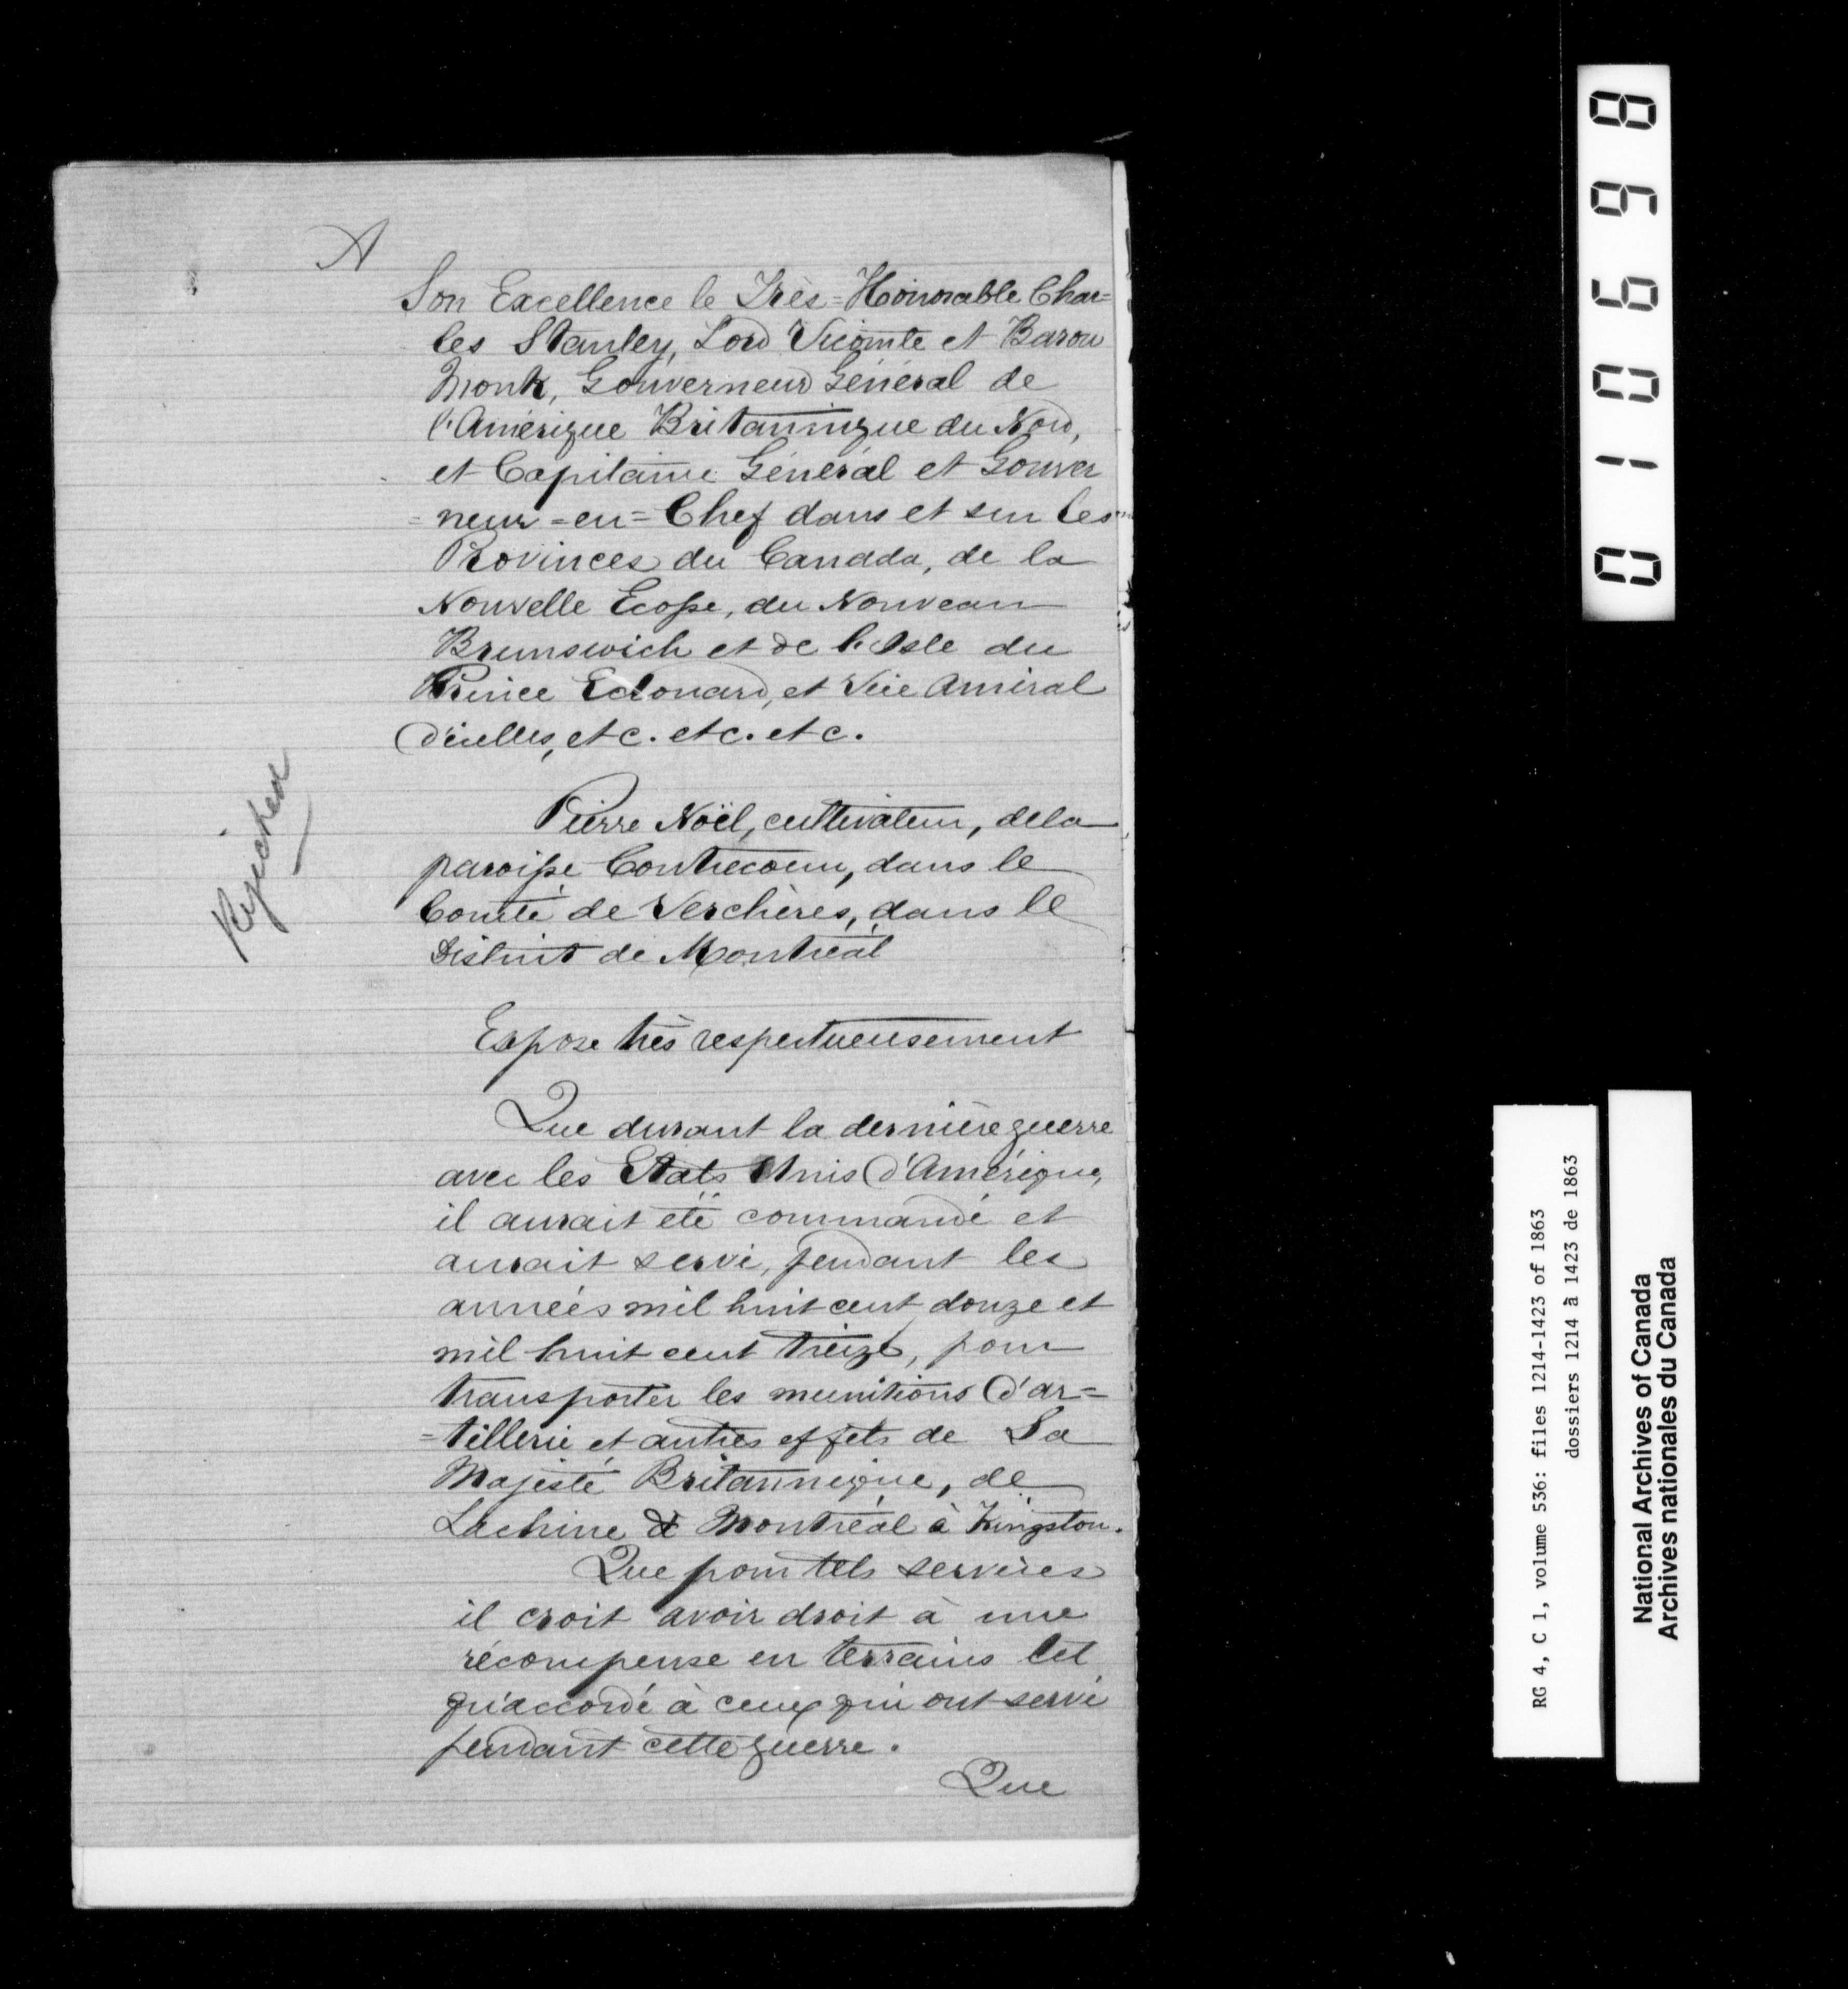 A
Son Excellence le Très=Honorable Char=
les Stanley, Lord Vicomte et Baron
Monk, Gouverneur Général de
l'Amérique Britannique du Nord,
et Capitaine Général et Gouver
=neur=en=Chef dans et sur les
Provinces du Canada, de la
Nouvelle Ecosse, du Nouveau
Brunswich et de l'Isle du
Prince Edouard, et Vice Amiral
d'icelles, etc. etc. etc.
Rejected
Pierre Noël, cultivateur, de la
paroisse Contrecoeur, dans le
Comté de Verchères, dans le
District de Montréal
Expose très respectueusement
Que durant la dernière guerre
avec les Etats Unis d'Amérique,
il aurait été commandé et
aurait servi, pendant les
années mil huit cent douze et
mil huit cent treize, pour
transporter les munitions d'ar=
=tillerie et autres effets de Sa
Majesté Britannique, de
Lachine & Montréal à Kingston.
Que pour tels services
il croit avoir droit à une
récompense en terrains tel
qu'accordé à ceux qui ont servi
pendant cette guerre.
Que
010698
RG 4, C 1, volume 536: files 1214-1423 of 1863
dossiers 1214 à 1423 de 1863
National Archives of Canada
Archives nationales du Canada